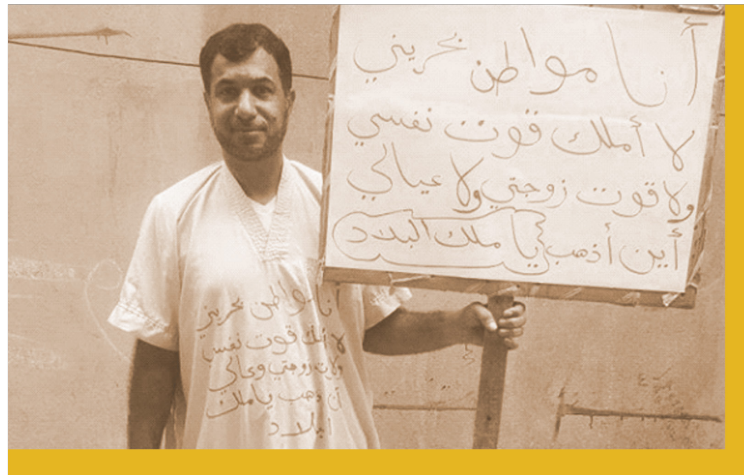 أنا مواطن بحريني
لا أملك قوت نفسي
ولا قوت زوجتي ولا عيالي
أين أذهب يا ملك البلاد
أنا مواطن بحريني
لا أملك قوت نفسي
زوجتي وعيالي
يا ملك
البلاد